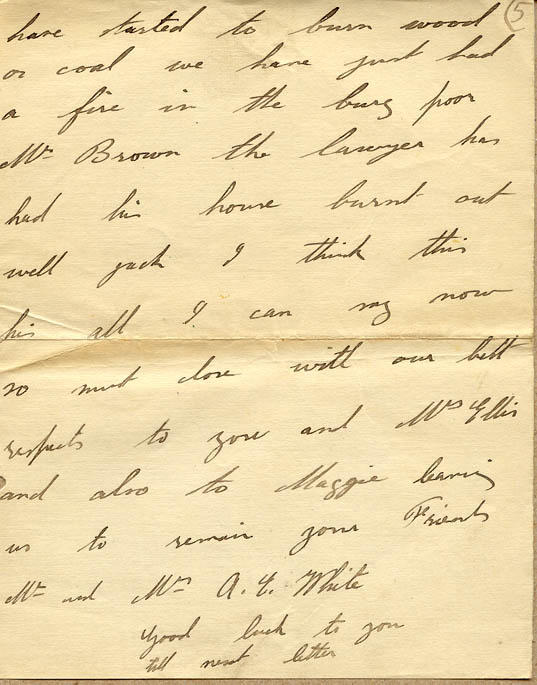 5
have started to burn wood
or coal we have just had
a fire in the burg poor
Mr Brown the lawyer has
had his house burnt out
well jack I think this
his all I can say now
so must close with our best
respects to you and Mrs Ellis
and also to Maggie leaving
us to remain your Friends
Mr and Mrs A. E. White
Good luck to you
till next letter